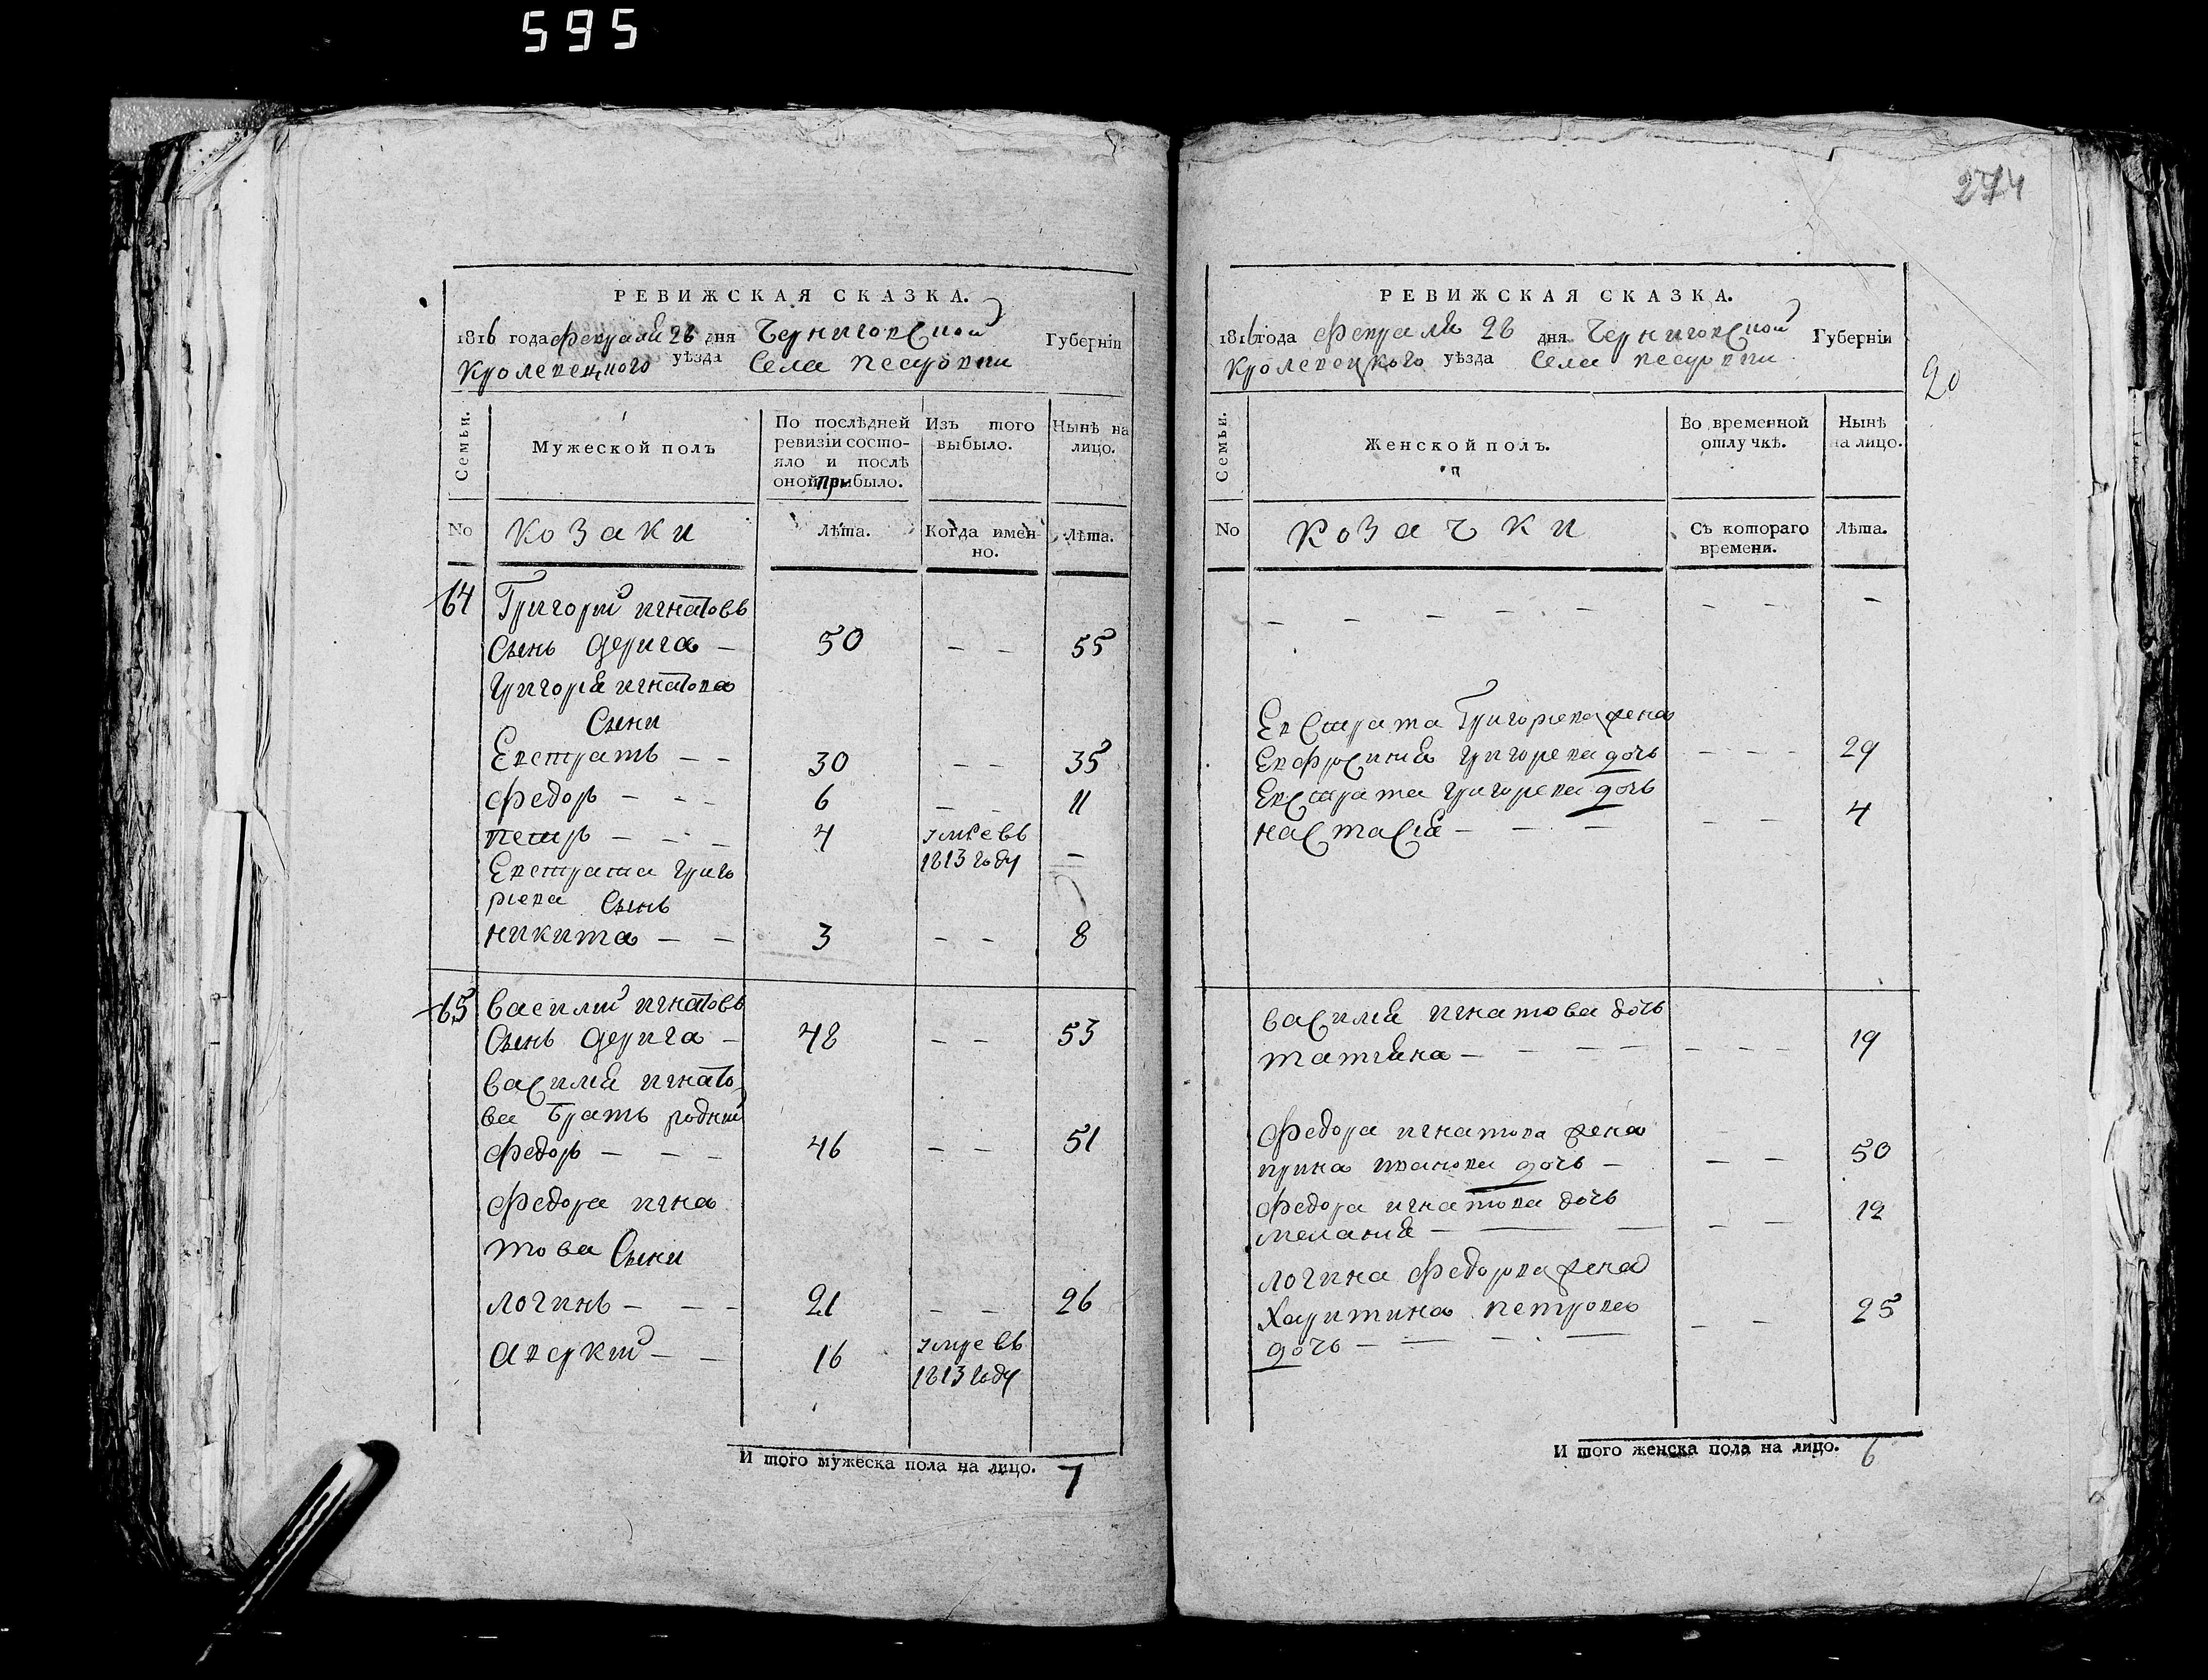 595
274
20
РЕВИЖСКАЯ СКАЗКА.
1816 года февраля 26 дня Черниговской Губерніи
Кролевецкого уѣзда Села
Семьи.
Мужеской полъ
По послѣдней ревизіи состояло и послѣ оной прибыло.
Изъ того выбыло.
Нынѣ на лицо.
No
Козаки
Лѣта.
Когда именно.
Лѣта.
64 Григорий игнатовъ
сынъ Дерига – 50 – – 55
Григория игнатова
сыни
Евстратъ – – 30 – – 35
федоръ – – – 6 – – 11
петръ – – – 4 умре въ 1813 году –
Евстрата Григо
риева сынъ
никита – – 3 – – 8
65 василий игнатовъ
сынъ Дерига – 48 – – 53
василия игнато
ва братъ родний
федоръ – – – 46 – – 51
федора игна
това сыни
логинъ – – – 21 – – 26
аверкий – – 16 умре въ 1813 году
И того мужеска пола на лицо. 7
РЕВИЖСКАЯ СКАЗКА.
1816 года февраля 26 дня Черниговской Губерніи
Кролевецкого уѣзда Села
Семьи.
Женской полъ.
Во временной отлучкѣ.
Нынѣ на лицо.
No
Козачки
Съ котораго времени.
Лѣта.
– – – – – – –
Евстрата Григориева жена
Евфросиния григорева дочь – – – 29
Евстрата григорева дочь
настасия – – – – – 4
василия игнатова дочь
татияна – – – – – – – 19
федора игнатова жена
ирина иванова дочь – – – 50
федора игнатова дочь
мелания – – – – – 12
логина федорва жена
Харитина петрова – – 25
дочь – – – –
И того женска пола на лицо. 6